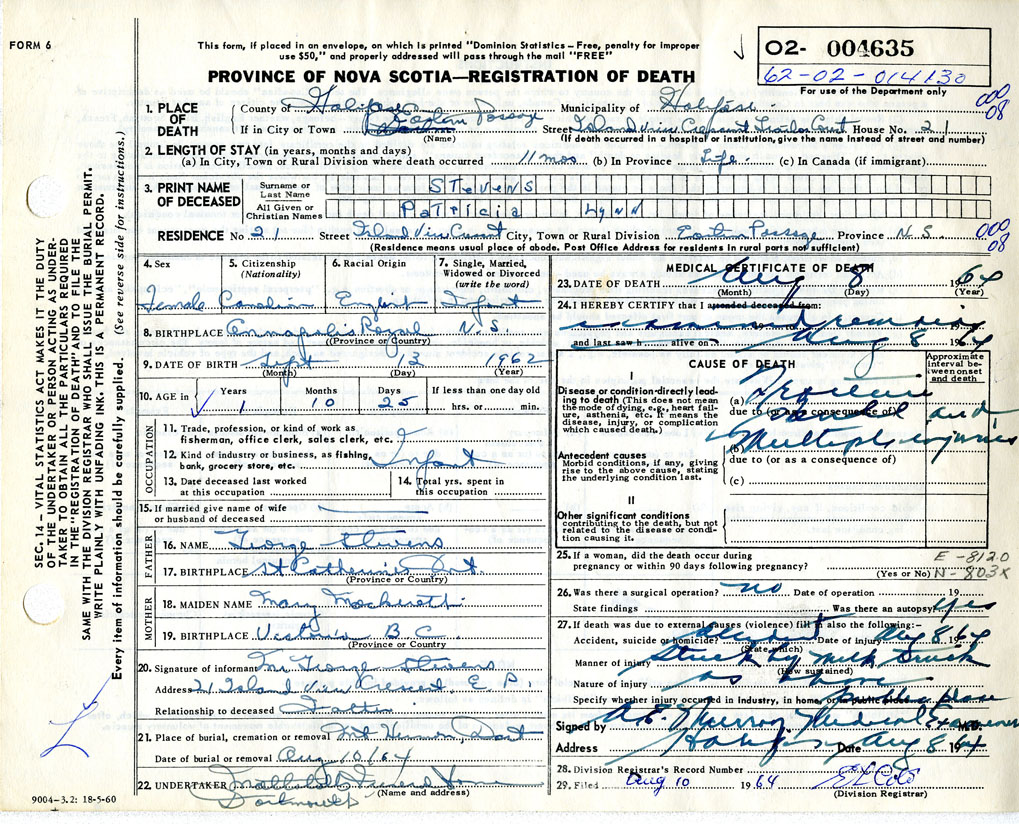 FORM 6
This form, if placed in an envelope, on which is printed "Dominion Statistics — Free, penalty for improper
use $50," and properly addressed will pass through the mail "FREE"
PROVINCE OF NOVA SCOTIA—REGISTRATION OF DEATH
02- 004635
62-02-014130
For use of the Department only
000
08
1. PLACE OF DEATH
County of Halifax Municipality of Halifax
If in City or Town Eastern Passage Street Island View Crescent Trailer Court House No. 21
(Name) (If death occurred in a hospital or institution, give its name instead of street and number)
2. LENGTH OF STAY (in years, months and days)
(a) In City, Town or Rural Division where death occurred 11 mos (b) In Province Life (c) In Canada (if immigrant)
3. PRINT NAME OF DECEASED
Surname or Last Name STEVENS
All Given or Christian Names PATRICIA LYNN
RESIDENCE No 21 Street Island View Crescent City, Town or Rural Division Eastern Passage Province N.S.
(Residence means usual place of abode. Post Office Address for residents in rural parts not sufficient)
000
08
4. Sex Female
5. Citizenship (Nationality) Canadian
6. Racial Origin English
7. Single, Married, Widowed or Divorced (write the word) Infant
8. BIRTHPLACE Annapolis Royal N.S.
(Province or Country)
9. DATE OF BIRTH Sept 13 1962
(Month) (Day) (Year)
10. AGE in Years 1 Months 10 Days 25 If less than one day old hrs. or min.
OCCUPATION
11. Trade, profession, or kind of work as fisherman, office clerk, sales clerk, etc.
12. Kind of industry or business, as fishing, bank, grocery store, etc. Infant
13. Date deceased last worked at this occupation
14. Total yrs. spent in this occupation
15. If married give name of wife or husband of deceased
FATHER
16. NAME George Stevens
17. BIRTHPLACE St Catherines Ont.
(Province or Country)
MOTHER
18. MAIDEN NAME Mary
19. BIRTHPLACE Victoria B.C.
(Province or Country)
20. Signature of informant Mr. George Stevens
Address 21 Island View Crescent E. P.
Relationship to deceased Father
21. Place of burial, cremation or removal Dart
Date of burial or removal Aug 10/64
22. UNDERTAKER Funeral Home
Dartmouth (Name and address)
MEDICAL CERTIFICATE OF DEATH
23. DATE OF DEATH Aug 8 1964
(Month) (Day) (Year)
24. I HEREBY CERTIFY that I attended deceased from:
examined remains 19
and last saw h alive on Aug 8 1964
CAUSE OF DEATH
Approximate interval between onset and death
I
Disease or condition directly leading to death (This does not mean the mode of dying, e.g., heart failure, asthenia, etc. It means the disease, injury, or complication which caused death.)
(a)
due to (or as a consequence of) and
(b) Multiple injuries
Antecedent causes
Morbid conditions, if any, giving rise to the above cause, stating the underlying condition last.
due to (or as a consequence of)
(c)
II
Other significant conditions
contributing to the death, but not related to the disease or condition causing it.
25. If a woman, did the death occur during pregnancy or within 90 days following pregnancy?
(Yes or No)
E-8120
N-803X
26. Was there a surgical operation? no Date of operation 19
State findings Was there an autopsy? yes
27. If death was due to external causes (violence) fill in also the following:-
Accident, suicide or homicide? Accident Date of injury Aug 8 1964
(State which)
Manner of injury Struck by Milk Truck
(How sustained)
Nature of injury as above
Specify whether injury occurred in industry, in home, or public place public place
Signed by Murray Medical Examiner M.D.
Address Halifax Date Aug 8 1964
28. Division Registrar's Record Number
29. Filed Aug 10 1964
(Division Registrar)
SEC. 14 — VITAL STATISTICS ACT MAKES IT THE DUTY
OF THE UNDERTAKER OR PERSON ACTING AS UNDER-
TAKER TO OBTAIN ALL THE PARTICULARS REQUIRED
IN THE "REGISTRATION OF DEATH" AND TO FILE THE
SAME WITH THE DIVISION REGISTRAR WHO SHALL ISSUE THE BURIAL PERMIT.
WRITE PLAINLY WITH UNFADING INK. THIS IS A PERMANENT RECORD.
Every item of information should be carefully supplied. (See reverse side for instructions.)
9004-3.2: 18-5-60